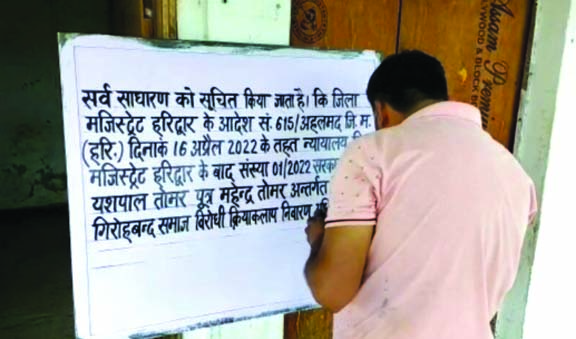 सर्व साधारण को सूचित किया जाता है। कि जिला
मजिस्ट्रेट हरिद्वार के आदेश सं. 615/अहलमद जि. म.
(हरि.) दिनांक 16 अप्रैल 2022 के तहत न्यायालय
मजिस्ट्रेट हरिद्वार के बाद संख्या 01/2022
यशपाल तोमर पुत्र महेन्द्र तोमर अन्तर्गत
गिरोहबन्द समाज विरोधी क्रियाकलाप निवारण
Assam Premiu
PLYWOOD & BLOCK BO